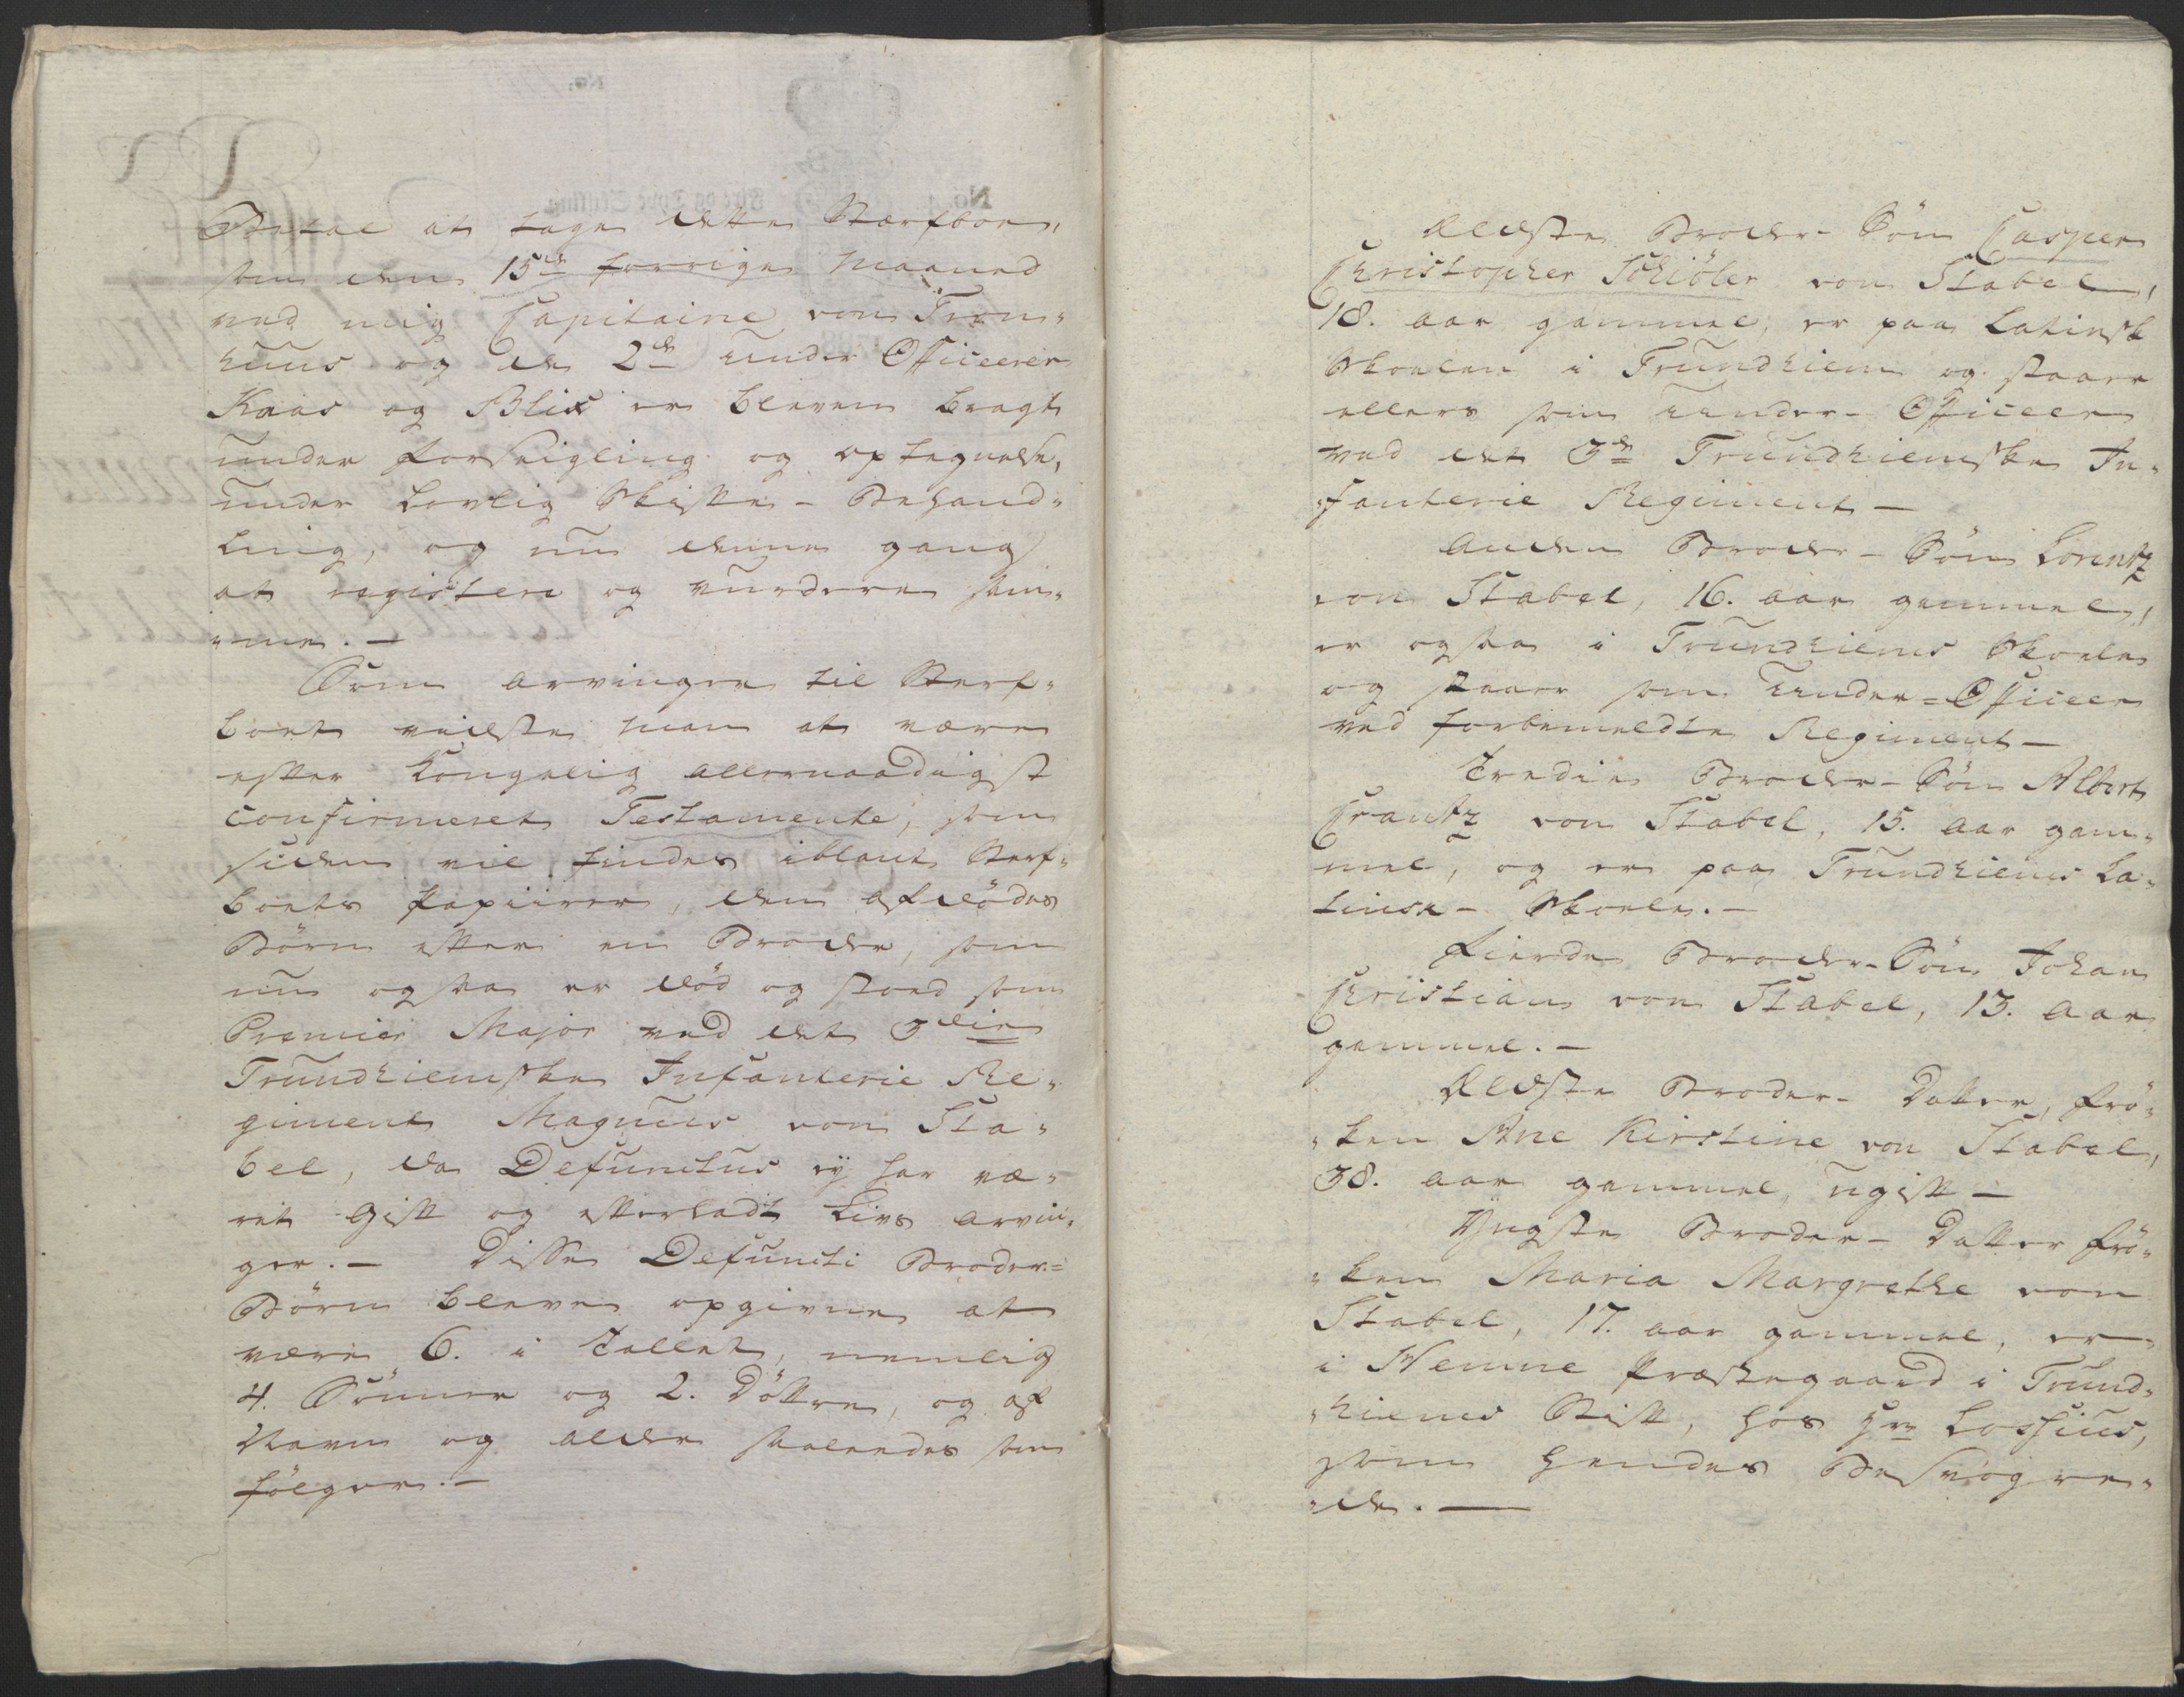 Befal at tage dette Stærfboe,
som den 15de forrige Maaned
ved mig Capitaine von Tron-
huus og de 2de Under Officeerer
Kaas og Blix er bleven bragt
under forseigling og optegnelse,
under Lovlig Skifte-Behand-
ling, og nu denne gang
at registere og vurdere sam-
"me. —
Som Arvinger til Sterf-
boet vidste man at være
efter Kongelig allernaadigst
Confirmeret Testamente, som
siden vil findes iblant Sterf-
boets Papiirer, den afdödes
Börn efter en Broder, som
nu ogsaa er död og stoed som
Premier Major ved det 3die
Trundhiemske Infanterie Re-
giment Magnus von Sta-
bel, da Defunctus ey har væ-
ret Gift og efterladt Livs Arvin-
ger. — Disse Defuncti Broder-
Börn bleve opgivne at
være 6. i Tallet, nemlig
4. Sönner og 2. Döttre, og af
Navn og Alder saaledes som
fölger. —
Ældste Broder-Sön Casper
Christopher Schiöler von Stabel,
18. aar gammel, er paa Latinsk
Skolen i Trundhiem og staaer
ellers som Under-Officeer
ved det 3de Trundhiemske In-
"fanterie Regiment —
Anden Broder-Sön Lorentz
von Stabel, 16. aar gammel,
er ogsaa i Trundhiems Skole
og staaer som Under-Officeer
ved forbemeldte Regiment —
Tredie Broder-Sön Albert
Crantz von Stabel, 15. aar gam-
mel, og er paa Trundhiems La-
tinsk-Skole. —
Fierde Broder-Sön Johan
Christian von Stabel, 13. aar
gammel. —
Ældste Broder-Datter, frö-
"ken Ane Kirstine von Stabel,
38. aar gammel, ugift —
Yngste Broder-Datter frö-
"ken Maria Margrethe von
Stabel, 17. aar gammel, er
i Hemne Præstegaard i Trund-
"hiems Stift, hos Hr. Lossius,
som hendes Besvogre-
"de. —